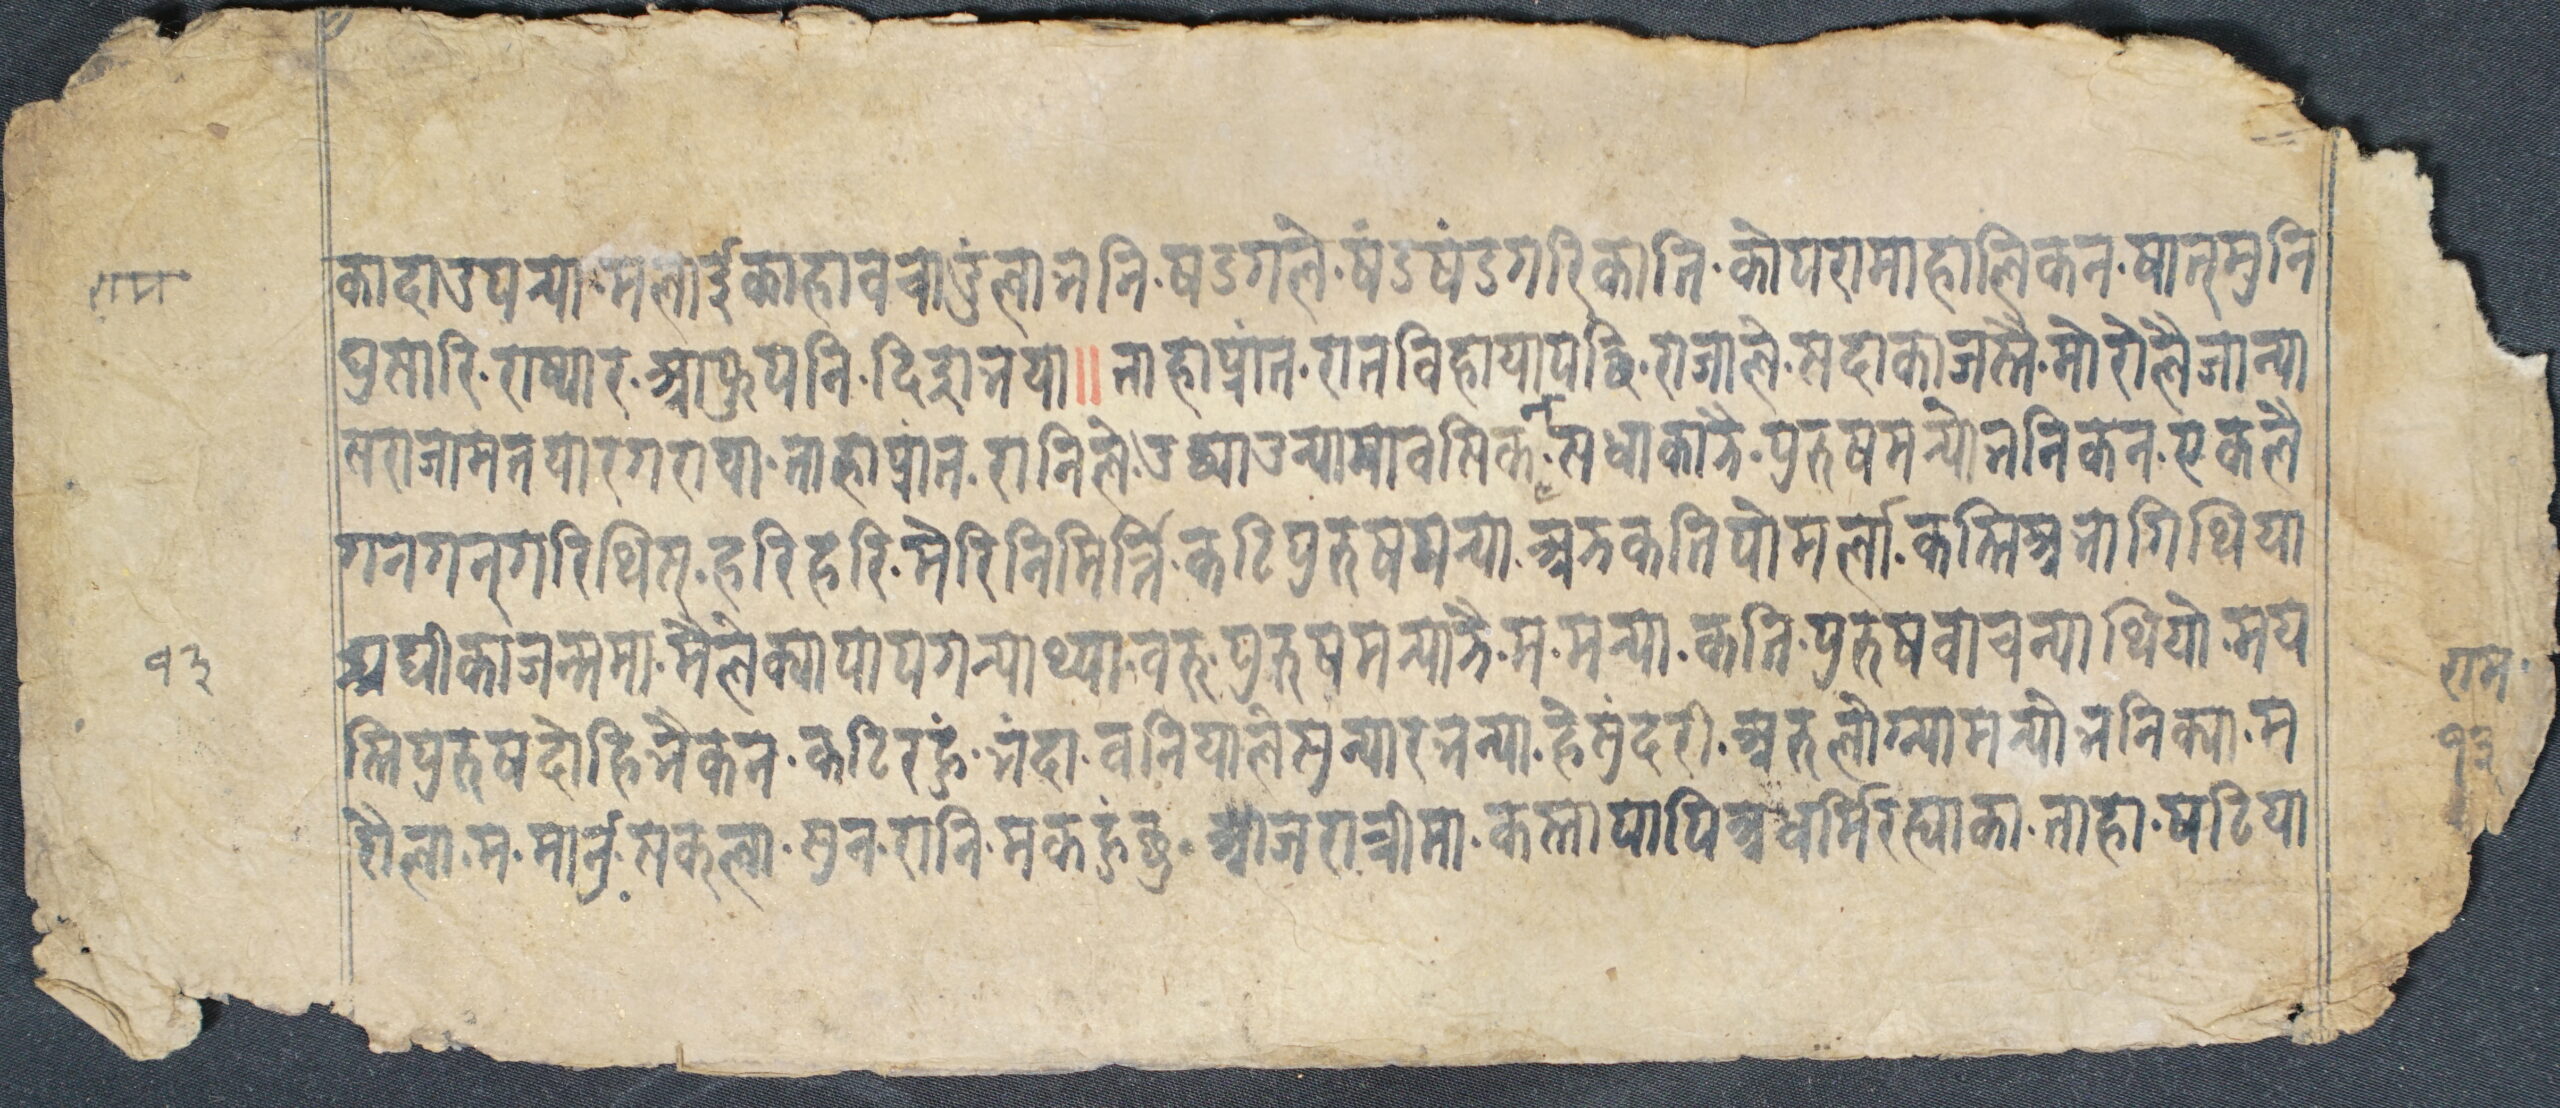 राम
कादाउपन्या मलाई काहा वचाउंला भननि षडगले षंडषंडगरि काति कोपरामा हालिकन षातमुनि
घुसारि राष्यार आफुपनि दिङ्दा भया॥ ताहाप्रांत रात विहायापछि राजाले सदाका जस्तै मोरोलै जान्या
सराजाम तयार गराया ताहाप्रांत रानिले उठ्या उन्यामा वसिकन सधाकारै पुरुषमन्यो भनिकन एकलै
गनगन् गरिथिस् हरि हरि मेरिनिमित्ति कटि पुरुष मन्या अरु कति पो मर्ला कस्ति अभागि थिया
अघीका जन्ममा मैले क्या पाप गन्या थ्या वरु पुरुष मन्यारै म मन्या कति पुरुष वाचन्या थियो मय
स्ति पुरुष दोहि भैकन कटि रहुं भंदा वनियाले सुन्यार भन्या हे सुंदरी अरु लोग्न्या मन्यो भनि क्या म
रौला म मानुं सकुला सुन रानि म कहुंछु आज रात्रीमा कस्ता पापि अधर्मि रह्याका ताहा षटिया
१३
राम
१३